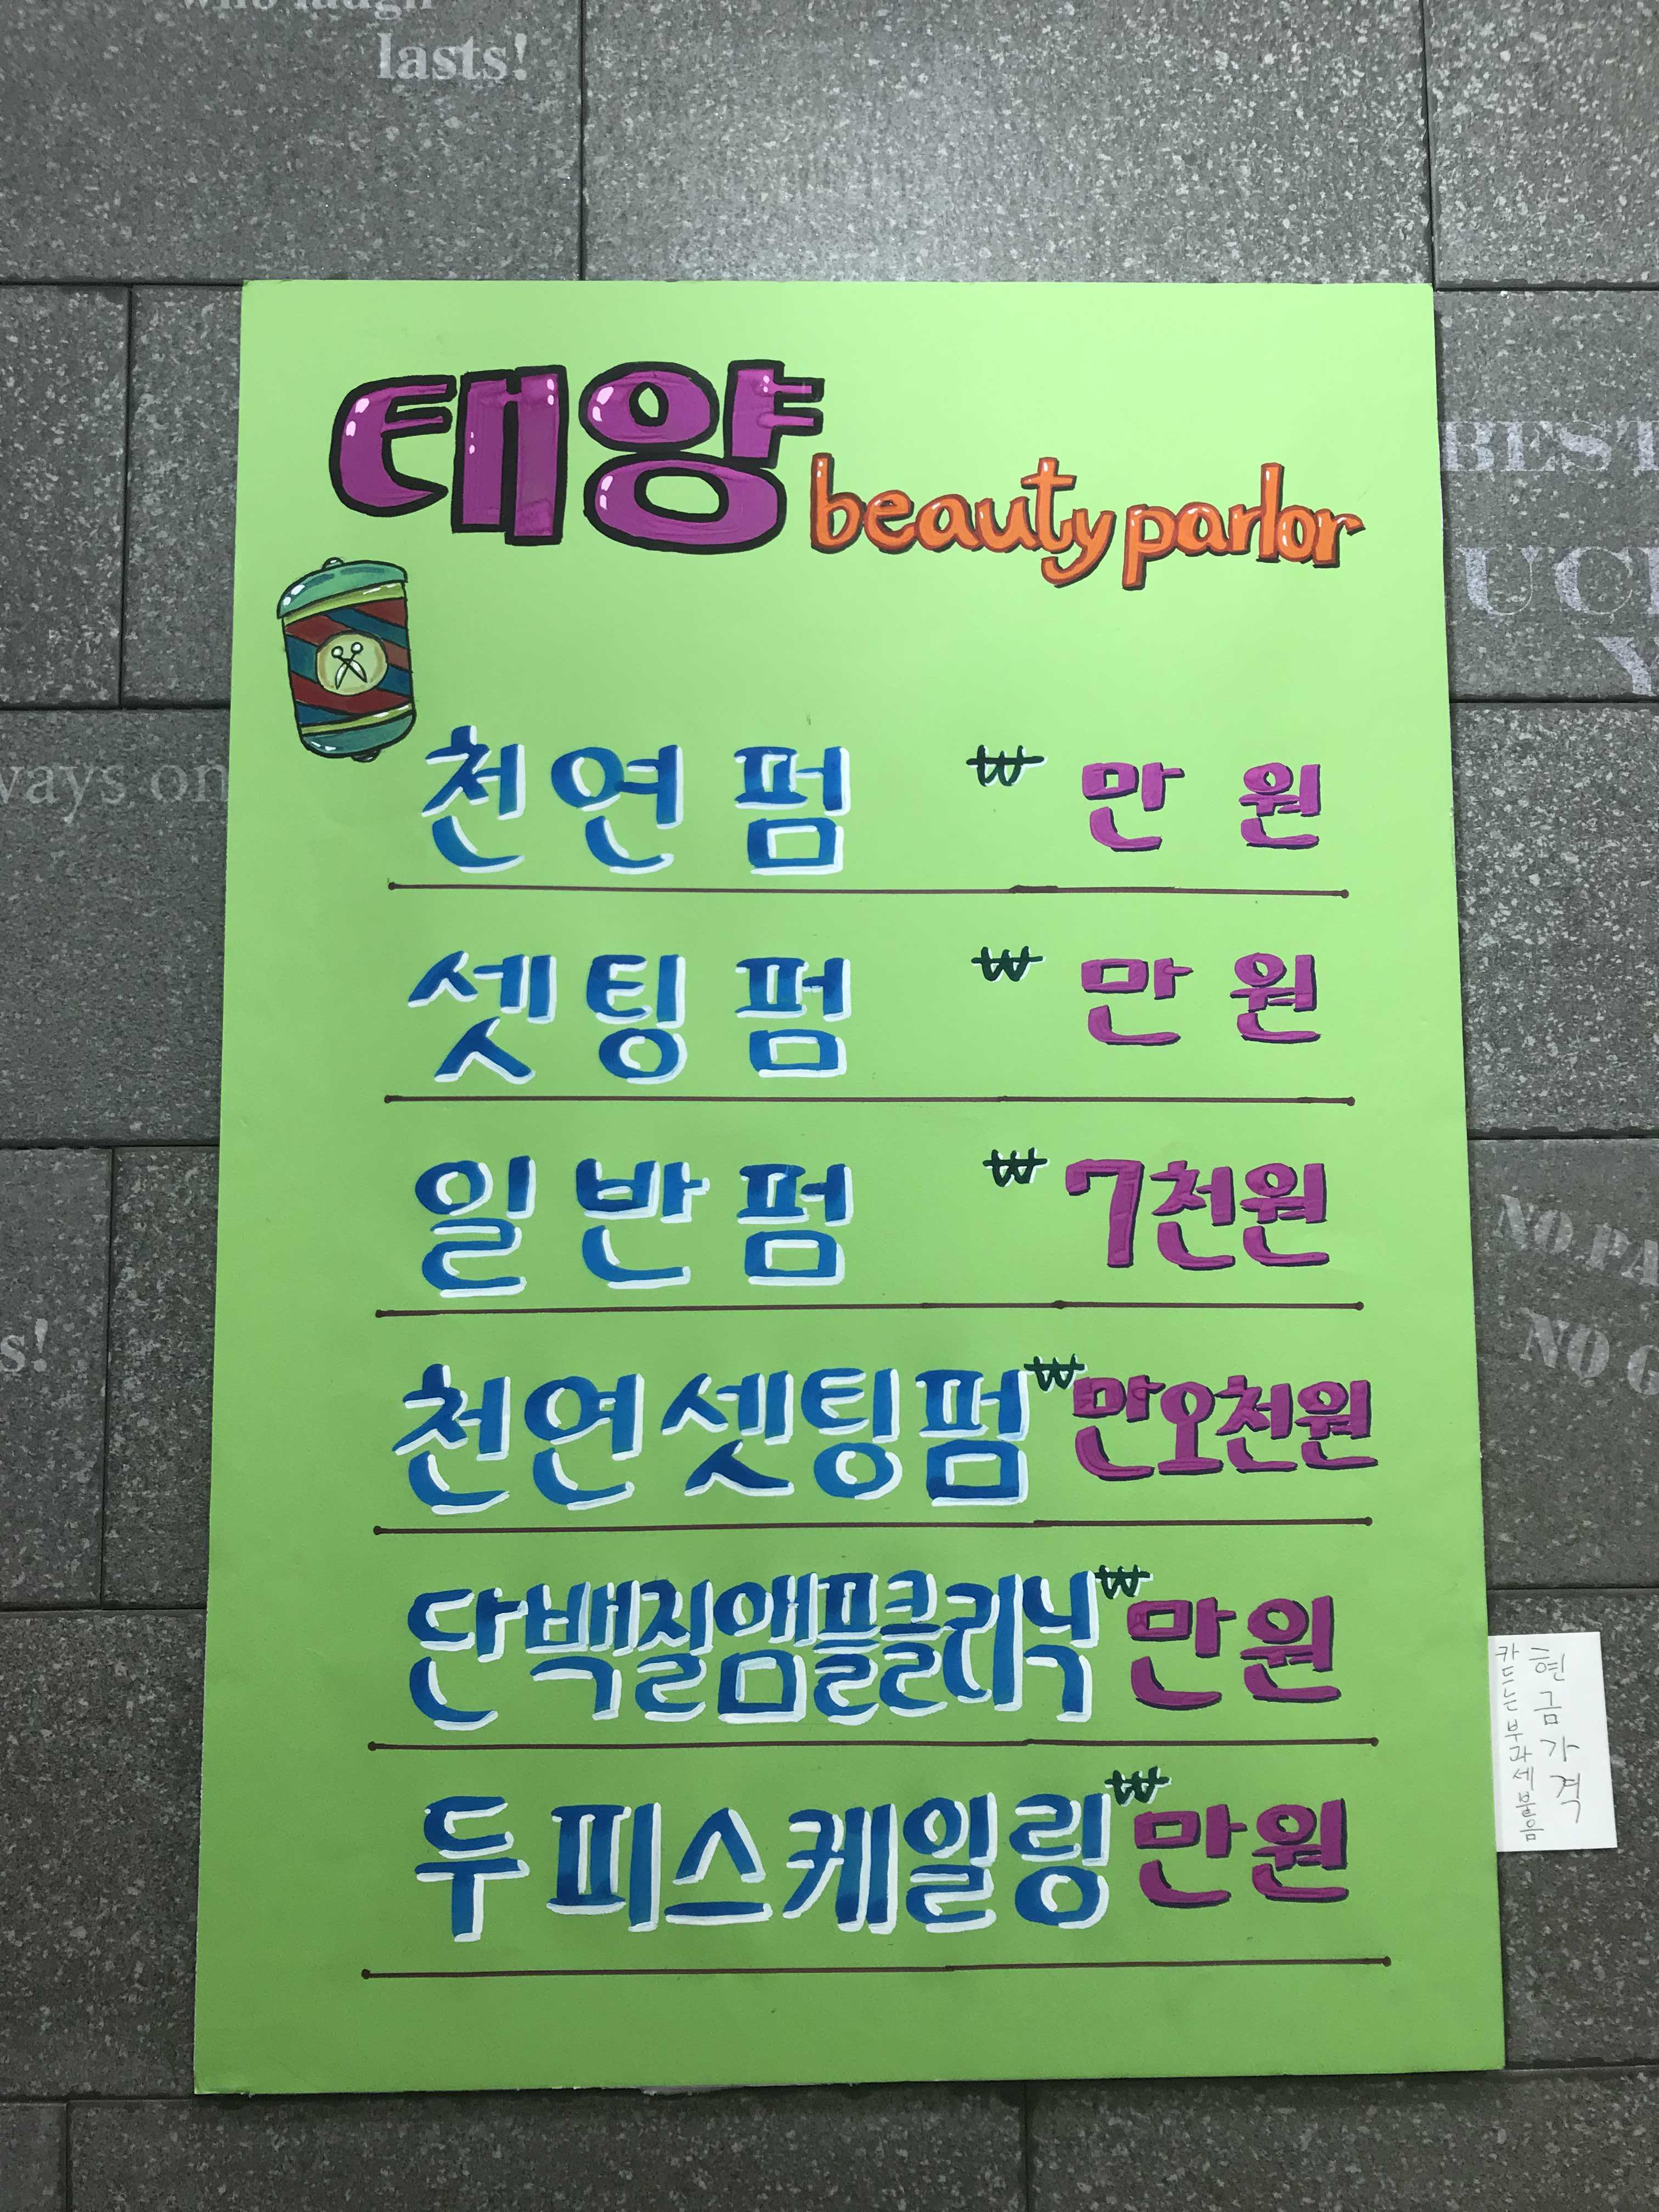 who laugh
lasts!
태양 beauty parlor
천연펌 ₩ 만원
셋팅펌 ₩ 만원
일반펌 ₩ 7천원
천연셋팅펌 ₩ 만오천원
단백질앰플클리닉 ₩ 만원
두피스케일링 ₩ 만원
현금가격
카드는부과세붙음
ways on
s!
BEST
UC
Y
NO PA
NO G